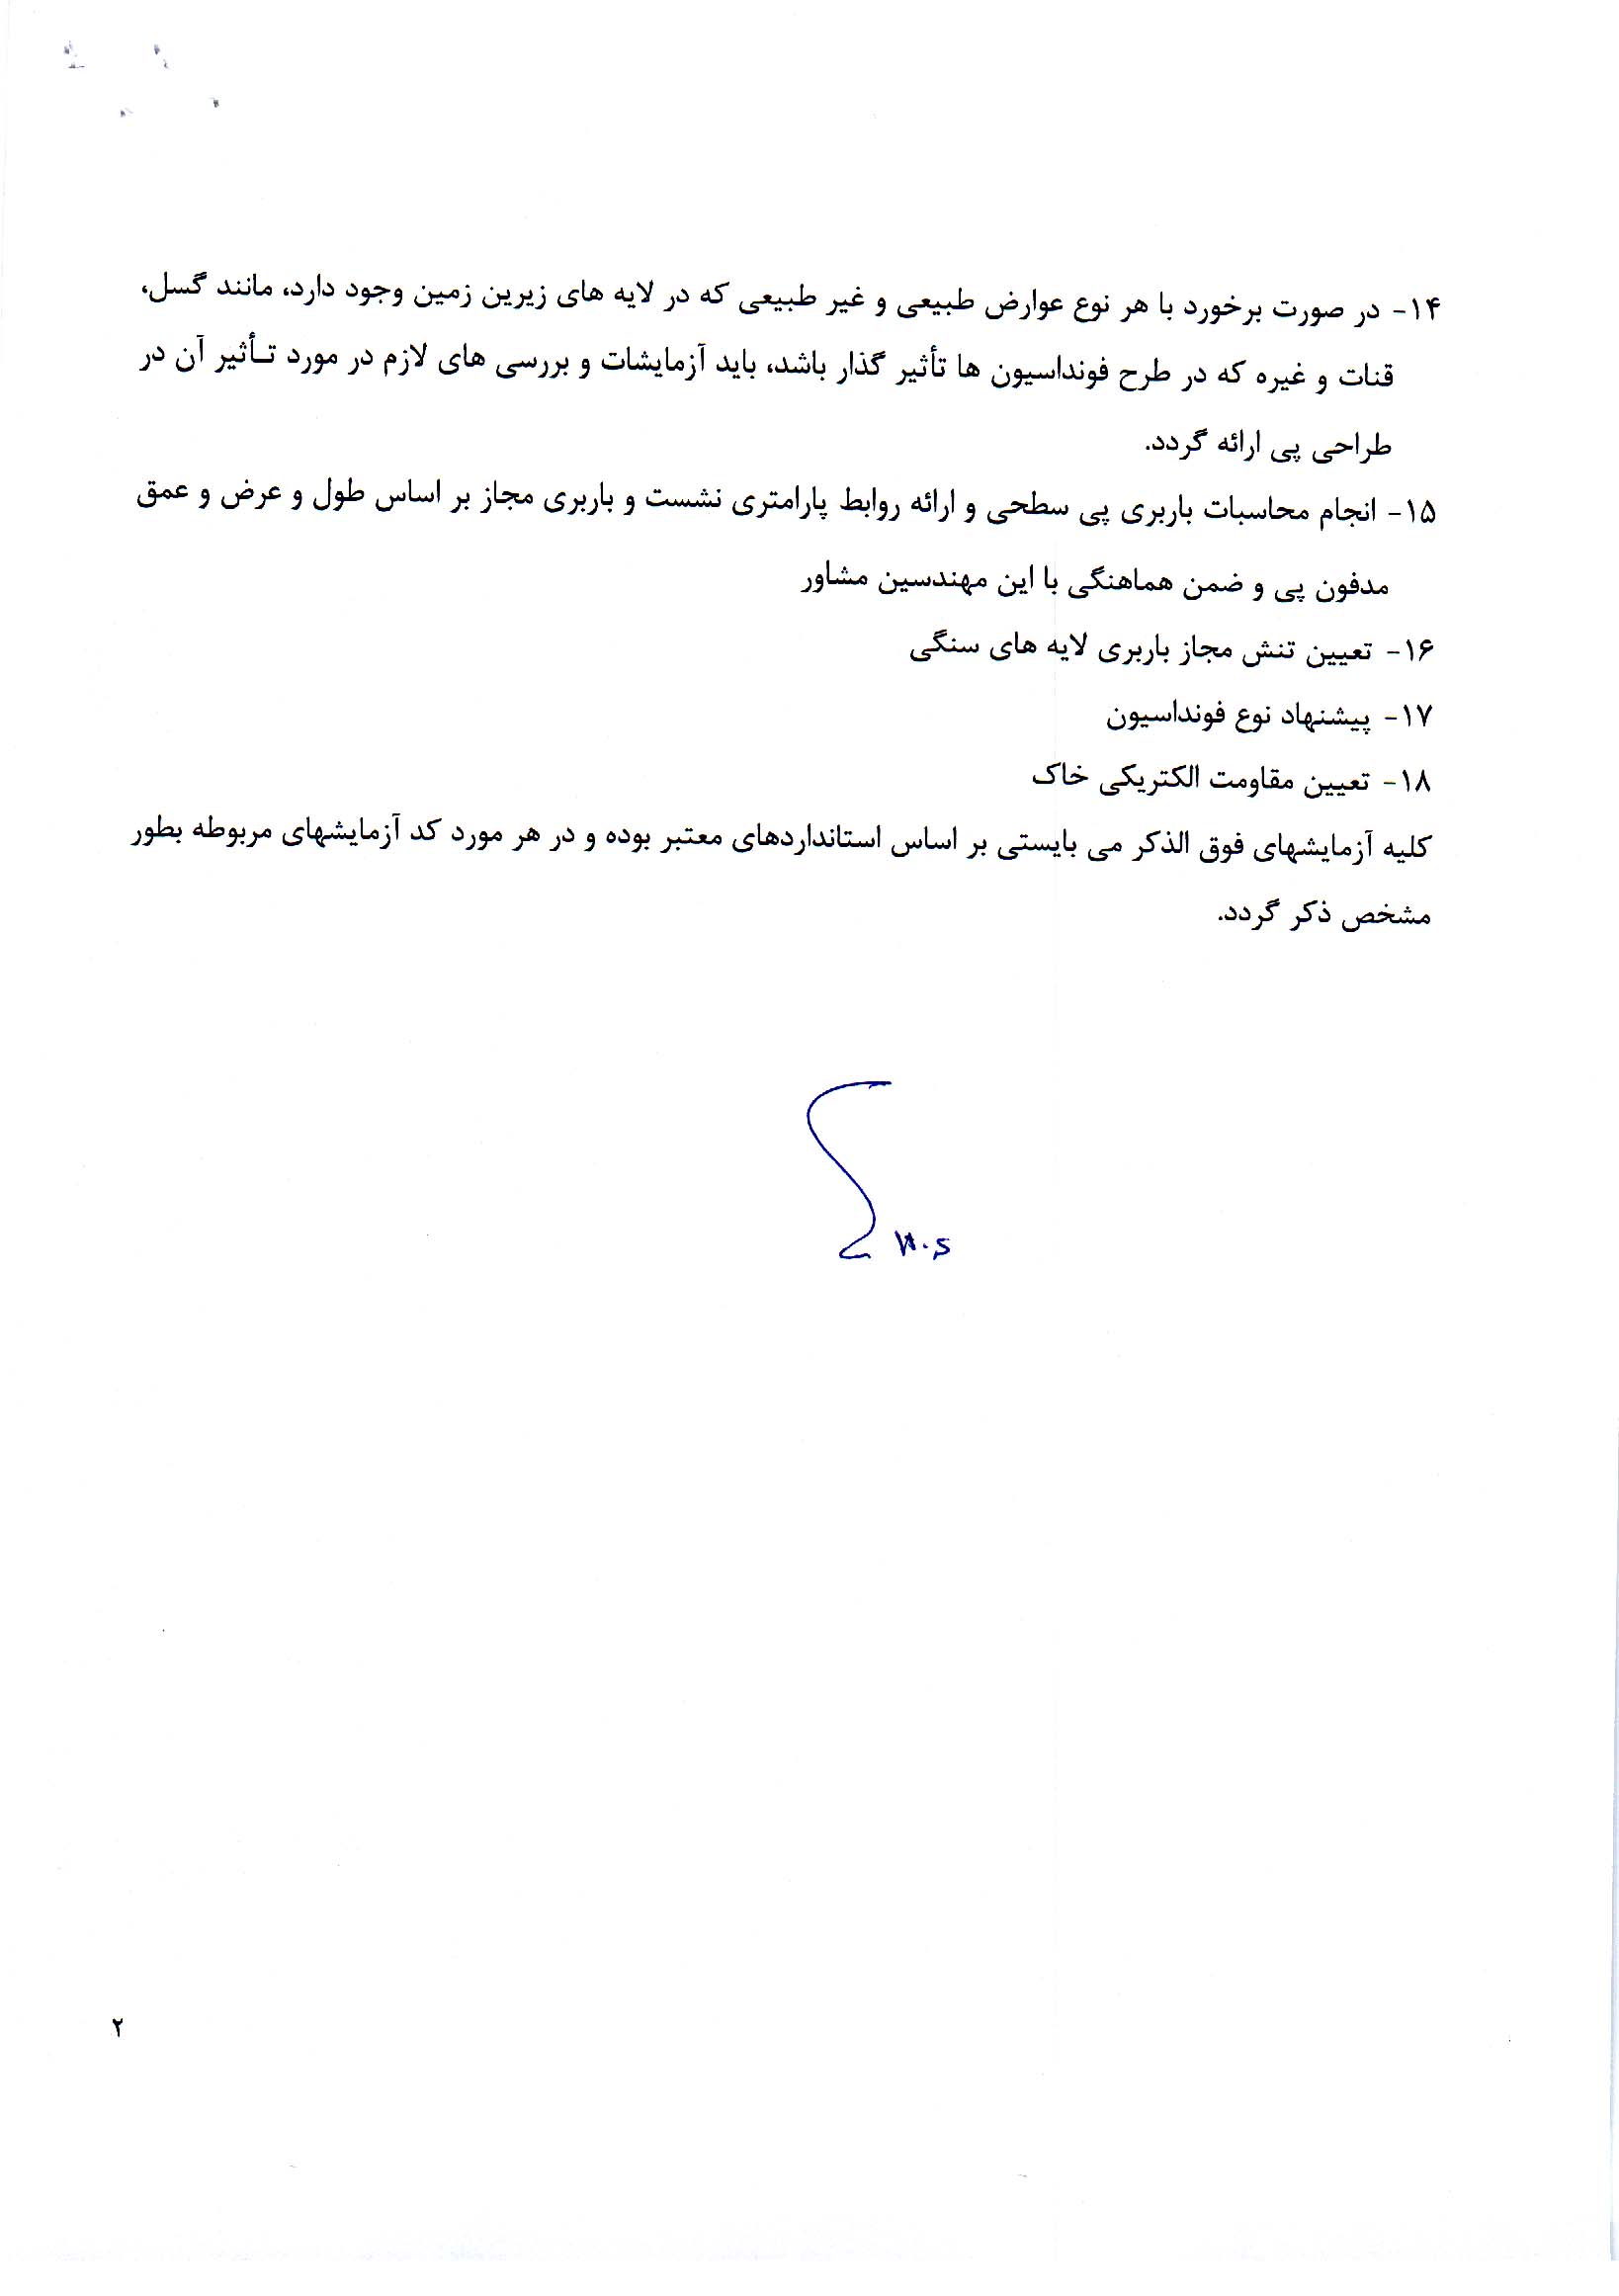 ۱۴- در صورت برخورد با هر نوع عوارض طبیعی و غیر طبیعی که در لایه های زیرین زمین وجود دارد، مانند گسل،
قنات و غیره که در طرح فونداسیون ها تأثیر گذار باشد، باید آزمایشات و بررسی های لازم در مورد تـأثیر آن در
طراحی پی ارائه گردد.
۱۵- انجام محاسبات باربری پی سطحی و ارائه روابط پارامتری نشست و باربری مجاز بر اساس طول و عرض و عمق
مدفون پی و ضمن هماهنگی با این مهندسین مشاور
۱۶- تعیین تنش مجاز باربری لایه های سنگی
۱۷- پیشنهاد نوع فونداسیون
۱۸- تعیین مقاومت الکتریکی خاک
کلیه آزمایشهای فوق الذکر می بایستی بر اساس استانداردهای معتبر بوده و در هر مورد کد آزمایشهای مربوطه بطور
مشخص ذکر گردد.
۲